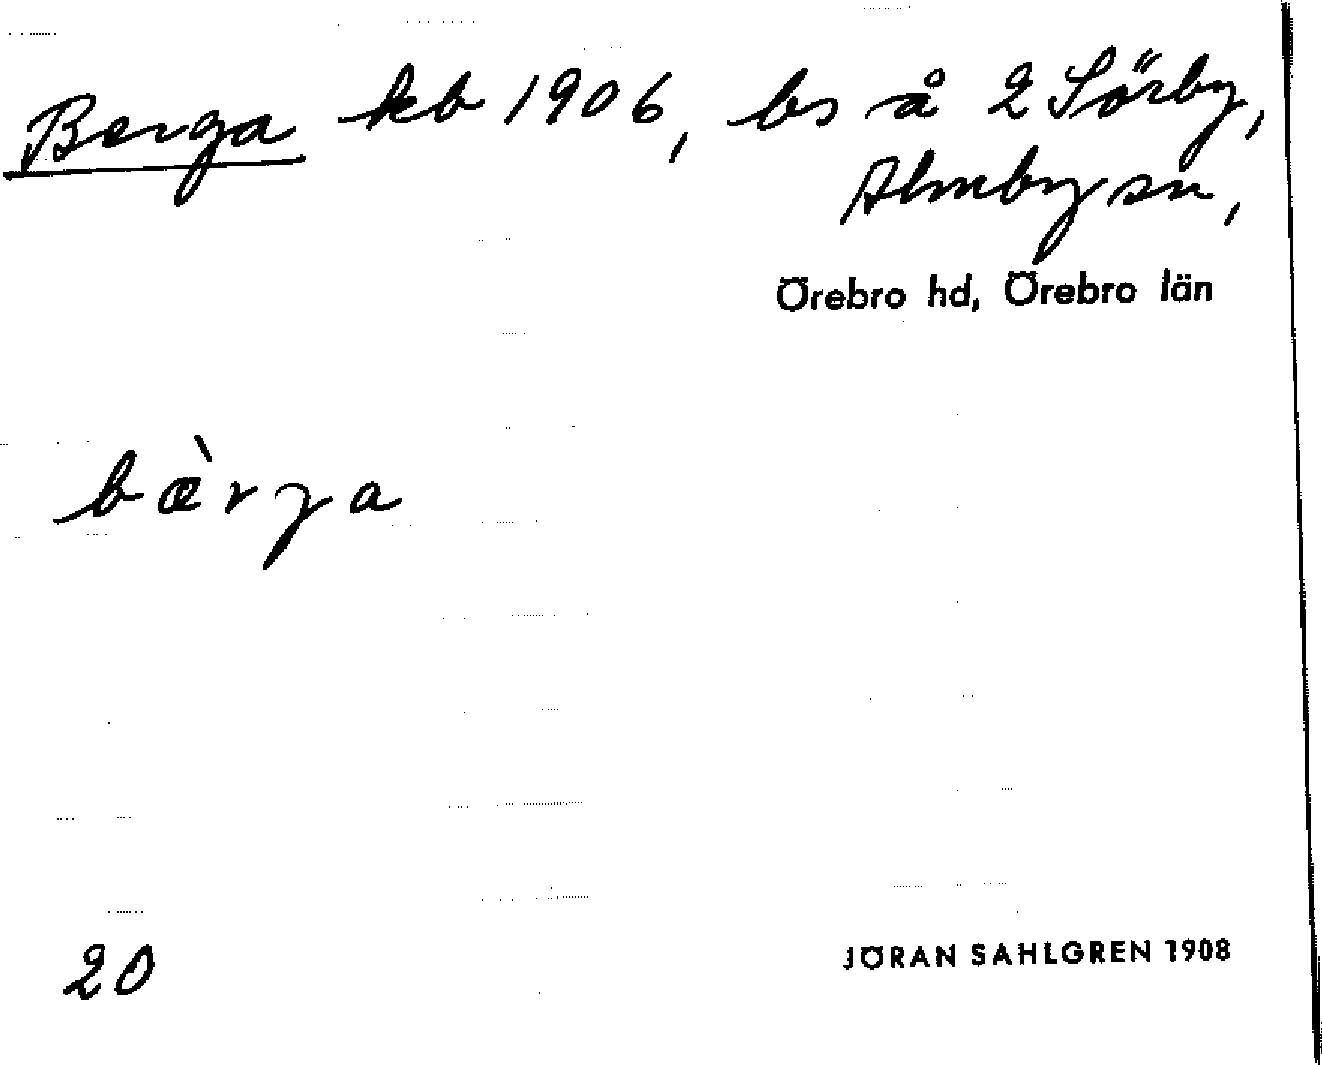 Berga kb 1906, bs å 2 Sörby,
Almby sn,
Örebro hd, Örebro län
bæ̀rga
20
JÖRAN SAHLGREN 1908